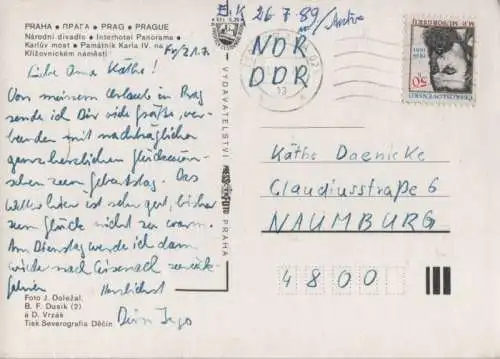 PRAHA • ПРАГА • PRAG • PRAGUE
Národní divadlo • Interhotel Panorama •
Karlův most • Památník Karla IV. na
Křižovnickém náměstí
Fr/21.7.
Liebe Anna Käthe!
Von meinem Urlaub in Prag
sende ich Dir viele Grüße, ver-
bunden mit nachträglichen
ganz herzlichen Glückwün-
schen zum Geburtstag. Das
Wetter hier ist sehr gut, bisher
zum Glück nicht zu warm.
Am Dienstag werde ich dann
wieder nach Eisenach zurück-
fahren
Herzlichst
Dein Ingo
Foto J. Doležal,
B. F. Dusík (2)
a D. Vrzák
Tisk Severografia Děčín
VYDAVATELSTVÍ PRAHA
E.K 26.7.89/
NDR
DDR
13
M.M. HODŽA
50
ČESKOSLOVENSKO
Käthe Daenicke
Claudiusstraße 6
NAUMBURG
4800